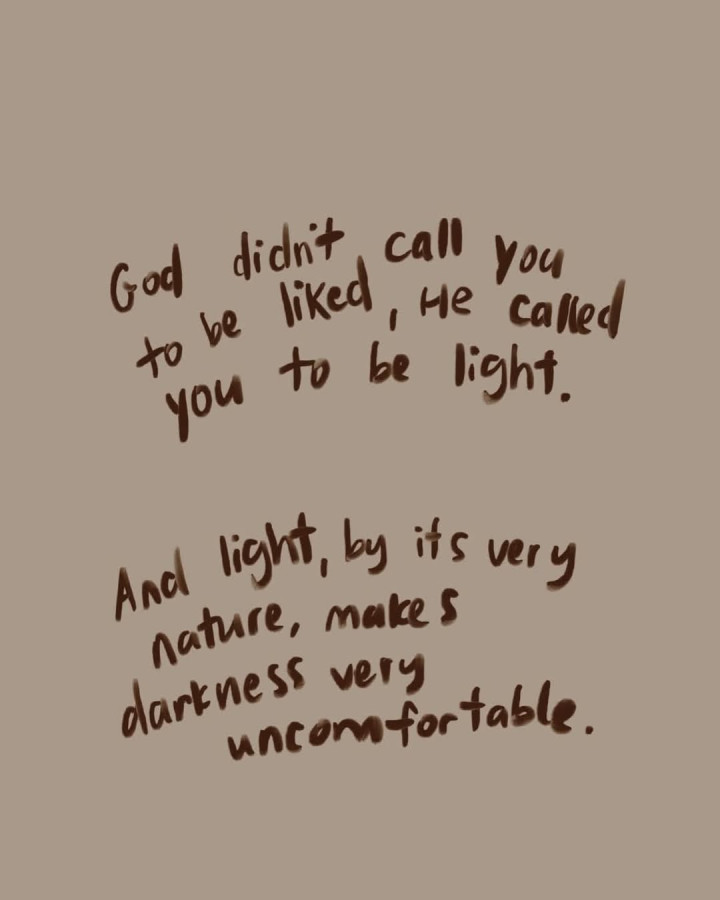 God didn't call you
to be liked, He called
you to be light.
And light, by its very
nature, makes
darkness very
uncomfortable.